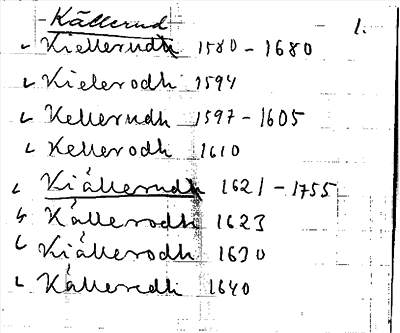 Källerud
1.
Kiellerudh 1580 - 1680
Kielerodh 1594
Kellerudh 1597 - 1605
Kellerodh 1610
Kiällerudh 1621 - 1755
Källerodh 1623
Kiällerodh 1630
Källeredh 1640